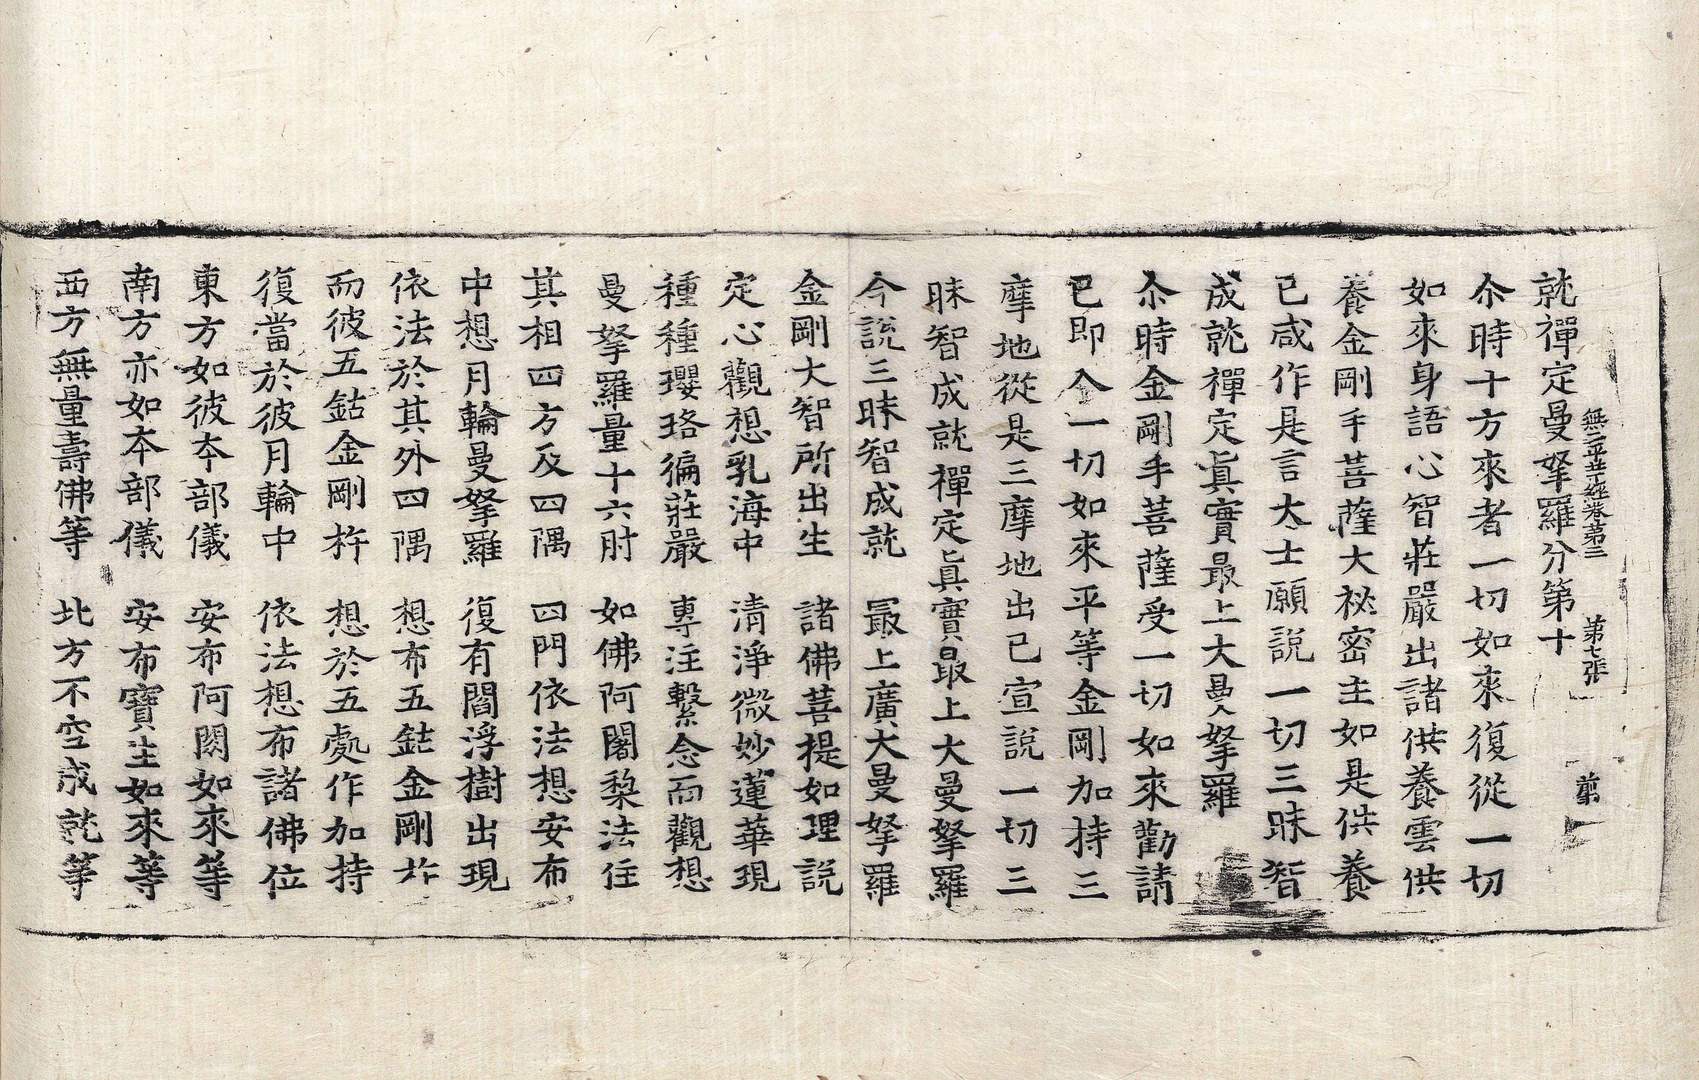 無二平等經卷第三 第七張 翦
就禪定曼拏羅分第十
尒時十方來者一切如來復從一切
如來身語心智莊嚴出諸供養雲供
養金剛手菩薩大祕密主如是供養
已咸作是言大士願說一切三昧智
成就禪定眞實最上大曼拏羅
尒時金剛手菩薩受一切如來勸請
已即入一切如來平等金剛加持三
摩地從是三摩地出已宣說一切三
昧智成就禪定眞實最上大曼拏羅
今說三昧智成就 最上廣大曼拏羅
金剛大智所出生 諸佛菩提如理說
定心觀想乳海中 清淨微妙蓮華現
種種瓔珞徧莊嚴 專注繫念而觀想
曼拏羅量十六肘 如佛阿闍梨法住
其相四方及四隅 四門依法想安布
中想月輪曼拏羅 復有閻浮樹出現
依法於其外四隅 想布五鈷金剛杵
而彼五鈷金剛杵 想於五處作加持
復當於彼月輪中 依法想布諸佛位
東方如彼夲部儀 安布阿閦如來等
南方亦如夲部儀 安布寶生如來等
西方無量壽佛等 北方不空成就等